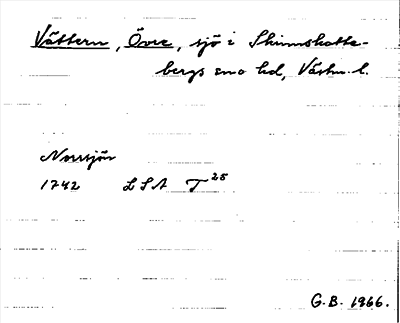 Vättern, Övre, sjö i Skinnskatte-
bergs sno hd, Västm. l.
Norrsjön
1742 LSA T 25
G.B. 1966.